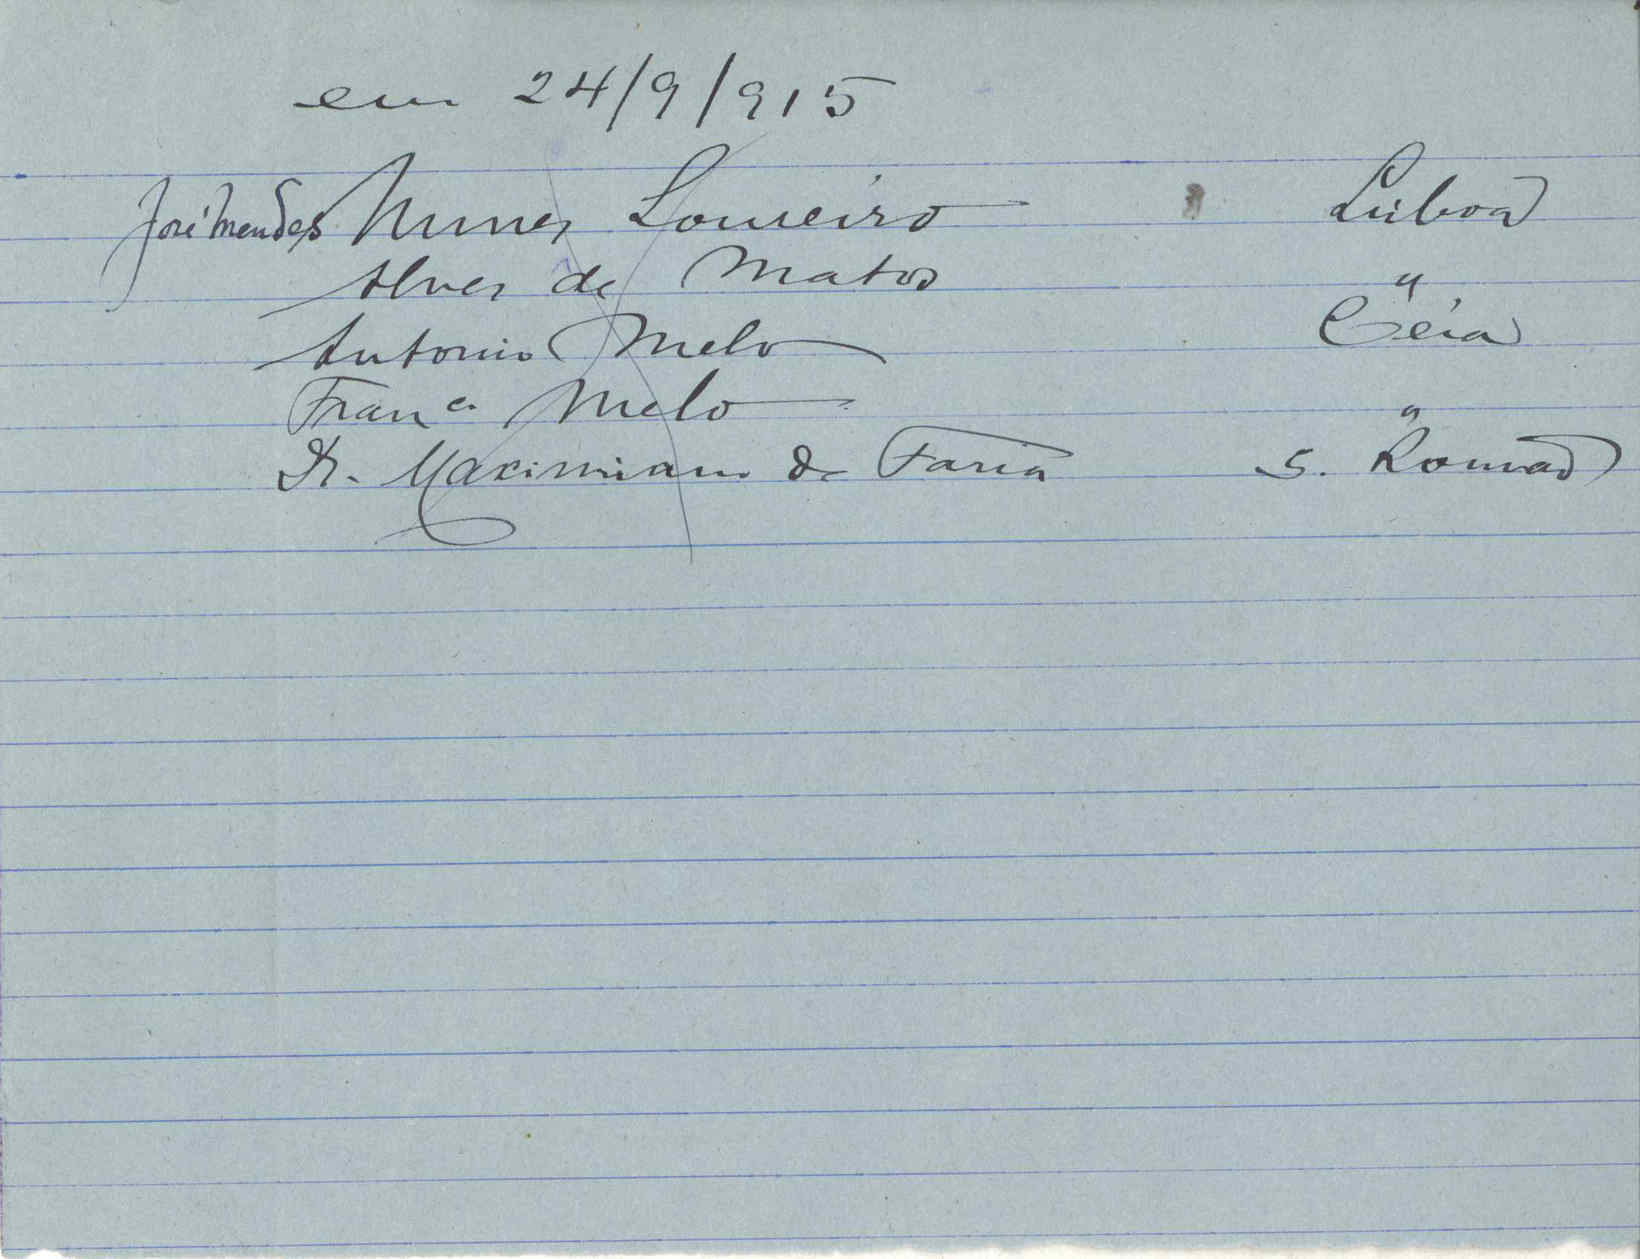 em 24/9/915
José Mendes Nunes Loureiro Lisboa
Alves de Matos "
Antonio Melo Ceia
Franco Melo "
Dr. Maximiano de Faria S. Romão